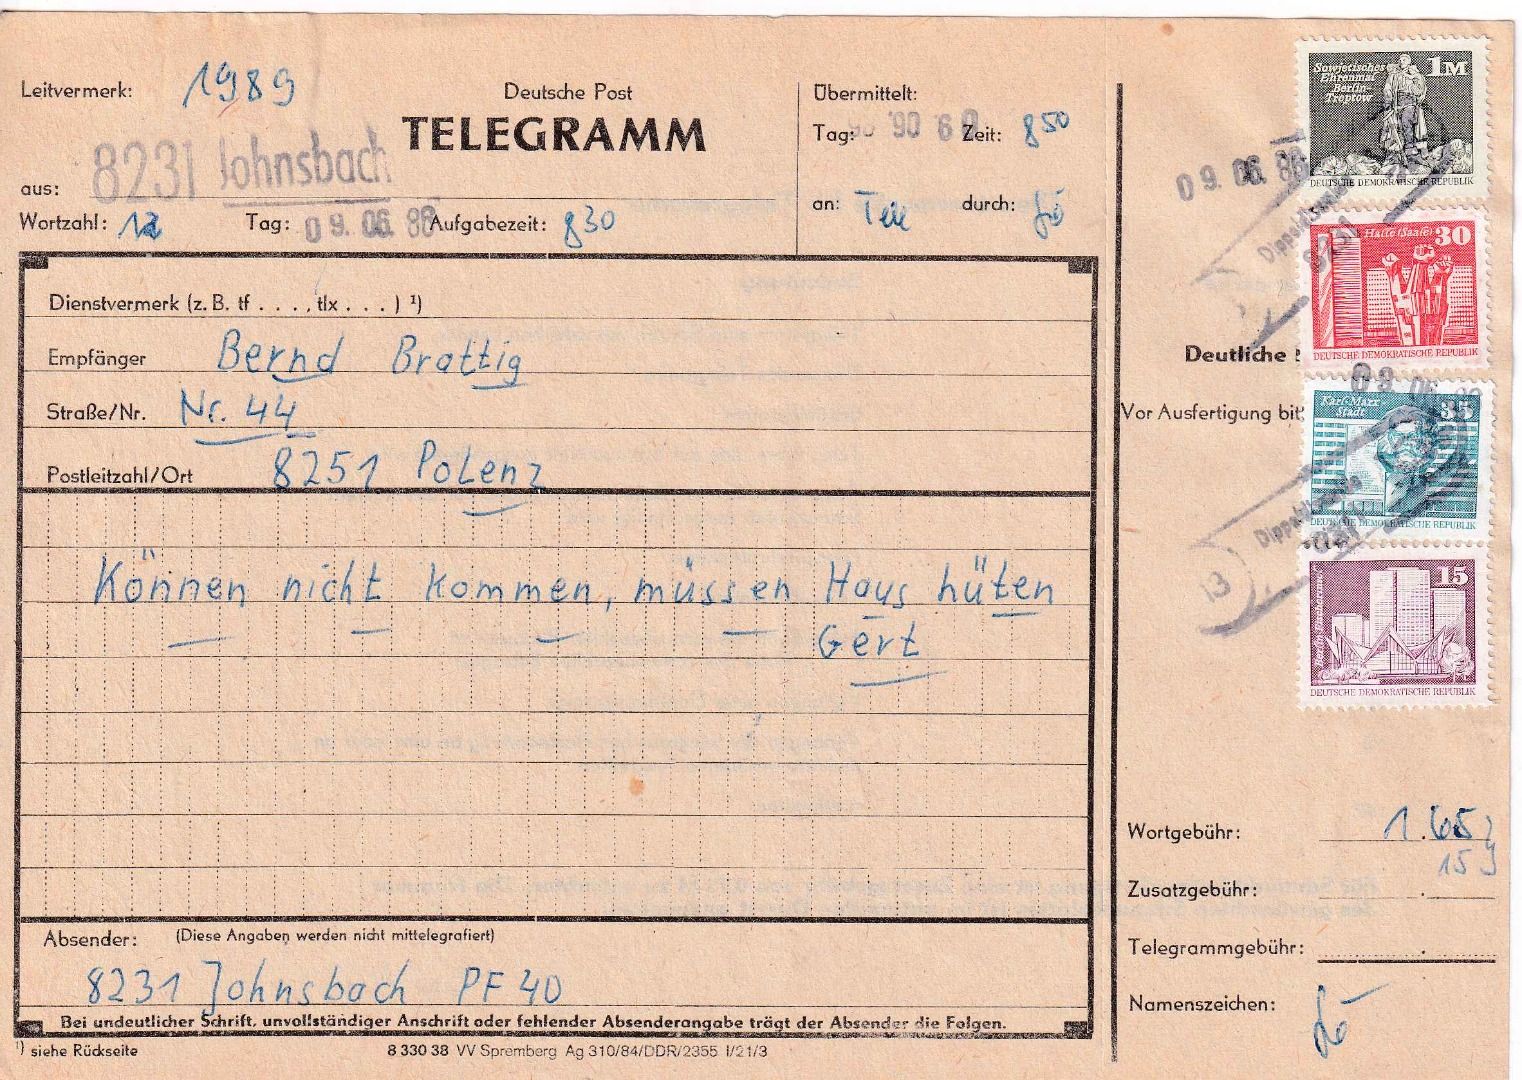 Leitvermerk: 1989
Deutsche Post
TELEGRAMM
8231 Johnsbach
aus:
Wortzahl: 12 Tag: 09. 06. 86 Aufgabezeit: 830
Übermittelt:
Tag: Zeit: 850
an: Tele durch:
Dienstvermerk (z. B. tf . . . , tlx . . . ) ¹)
Empfänger Bernd Brattig
Straße/Nr. Nr. 44
Postleitzahl/Ort 8251 Polenz
Können nicht kommen, müssen Haus hüten
Gert
Absender: (Diese Angaben werden nicht mittelegrafiert)
8231 Johnsbach PF 40
Bei undeutlicher Schrift, unvollständiger Anschrift oder fehlender Absenderangabe trägt der Absender die Folgen.
¹) siehe Rückseite
8 330 38 VV Spremberg Ag 310/84/DDR/2355 I/21/3
Sowjetisches
Ehrenmal
Berlin-
Treptow
1M
DEUTSCHE DEMOKRATISCHE REPUBLIK
09. 06. 86
8231
Halle (Saale) 30
DEUTSCHE DEMOKRATISCHE REPUBLIK
Deutliche
Vor Ausfertigung bit
09. 06.
Karl-Marx-
Stadt
35
DEUTSCHE DEMOKRATISCHE REPUBLIK
13
15
DEUTSCHE DEMOKRATISCHE REPUBLIK
Wortgebühr: 1.65
15
Zusatzgebühr:
Telegrammgebühr:
Namenszeichen: